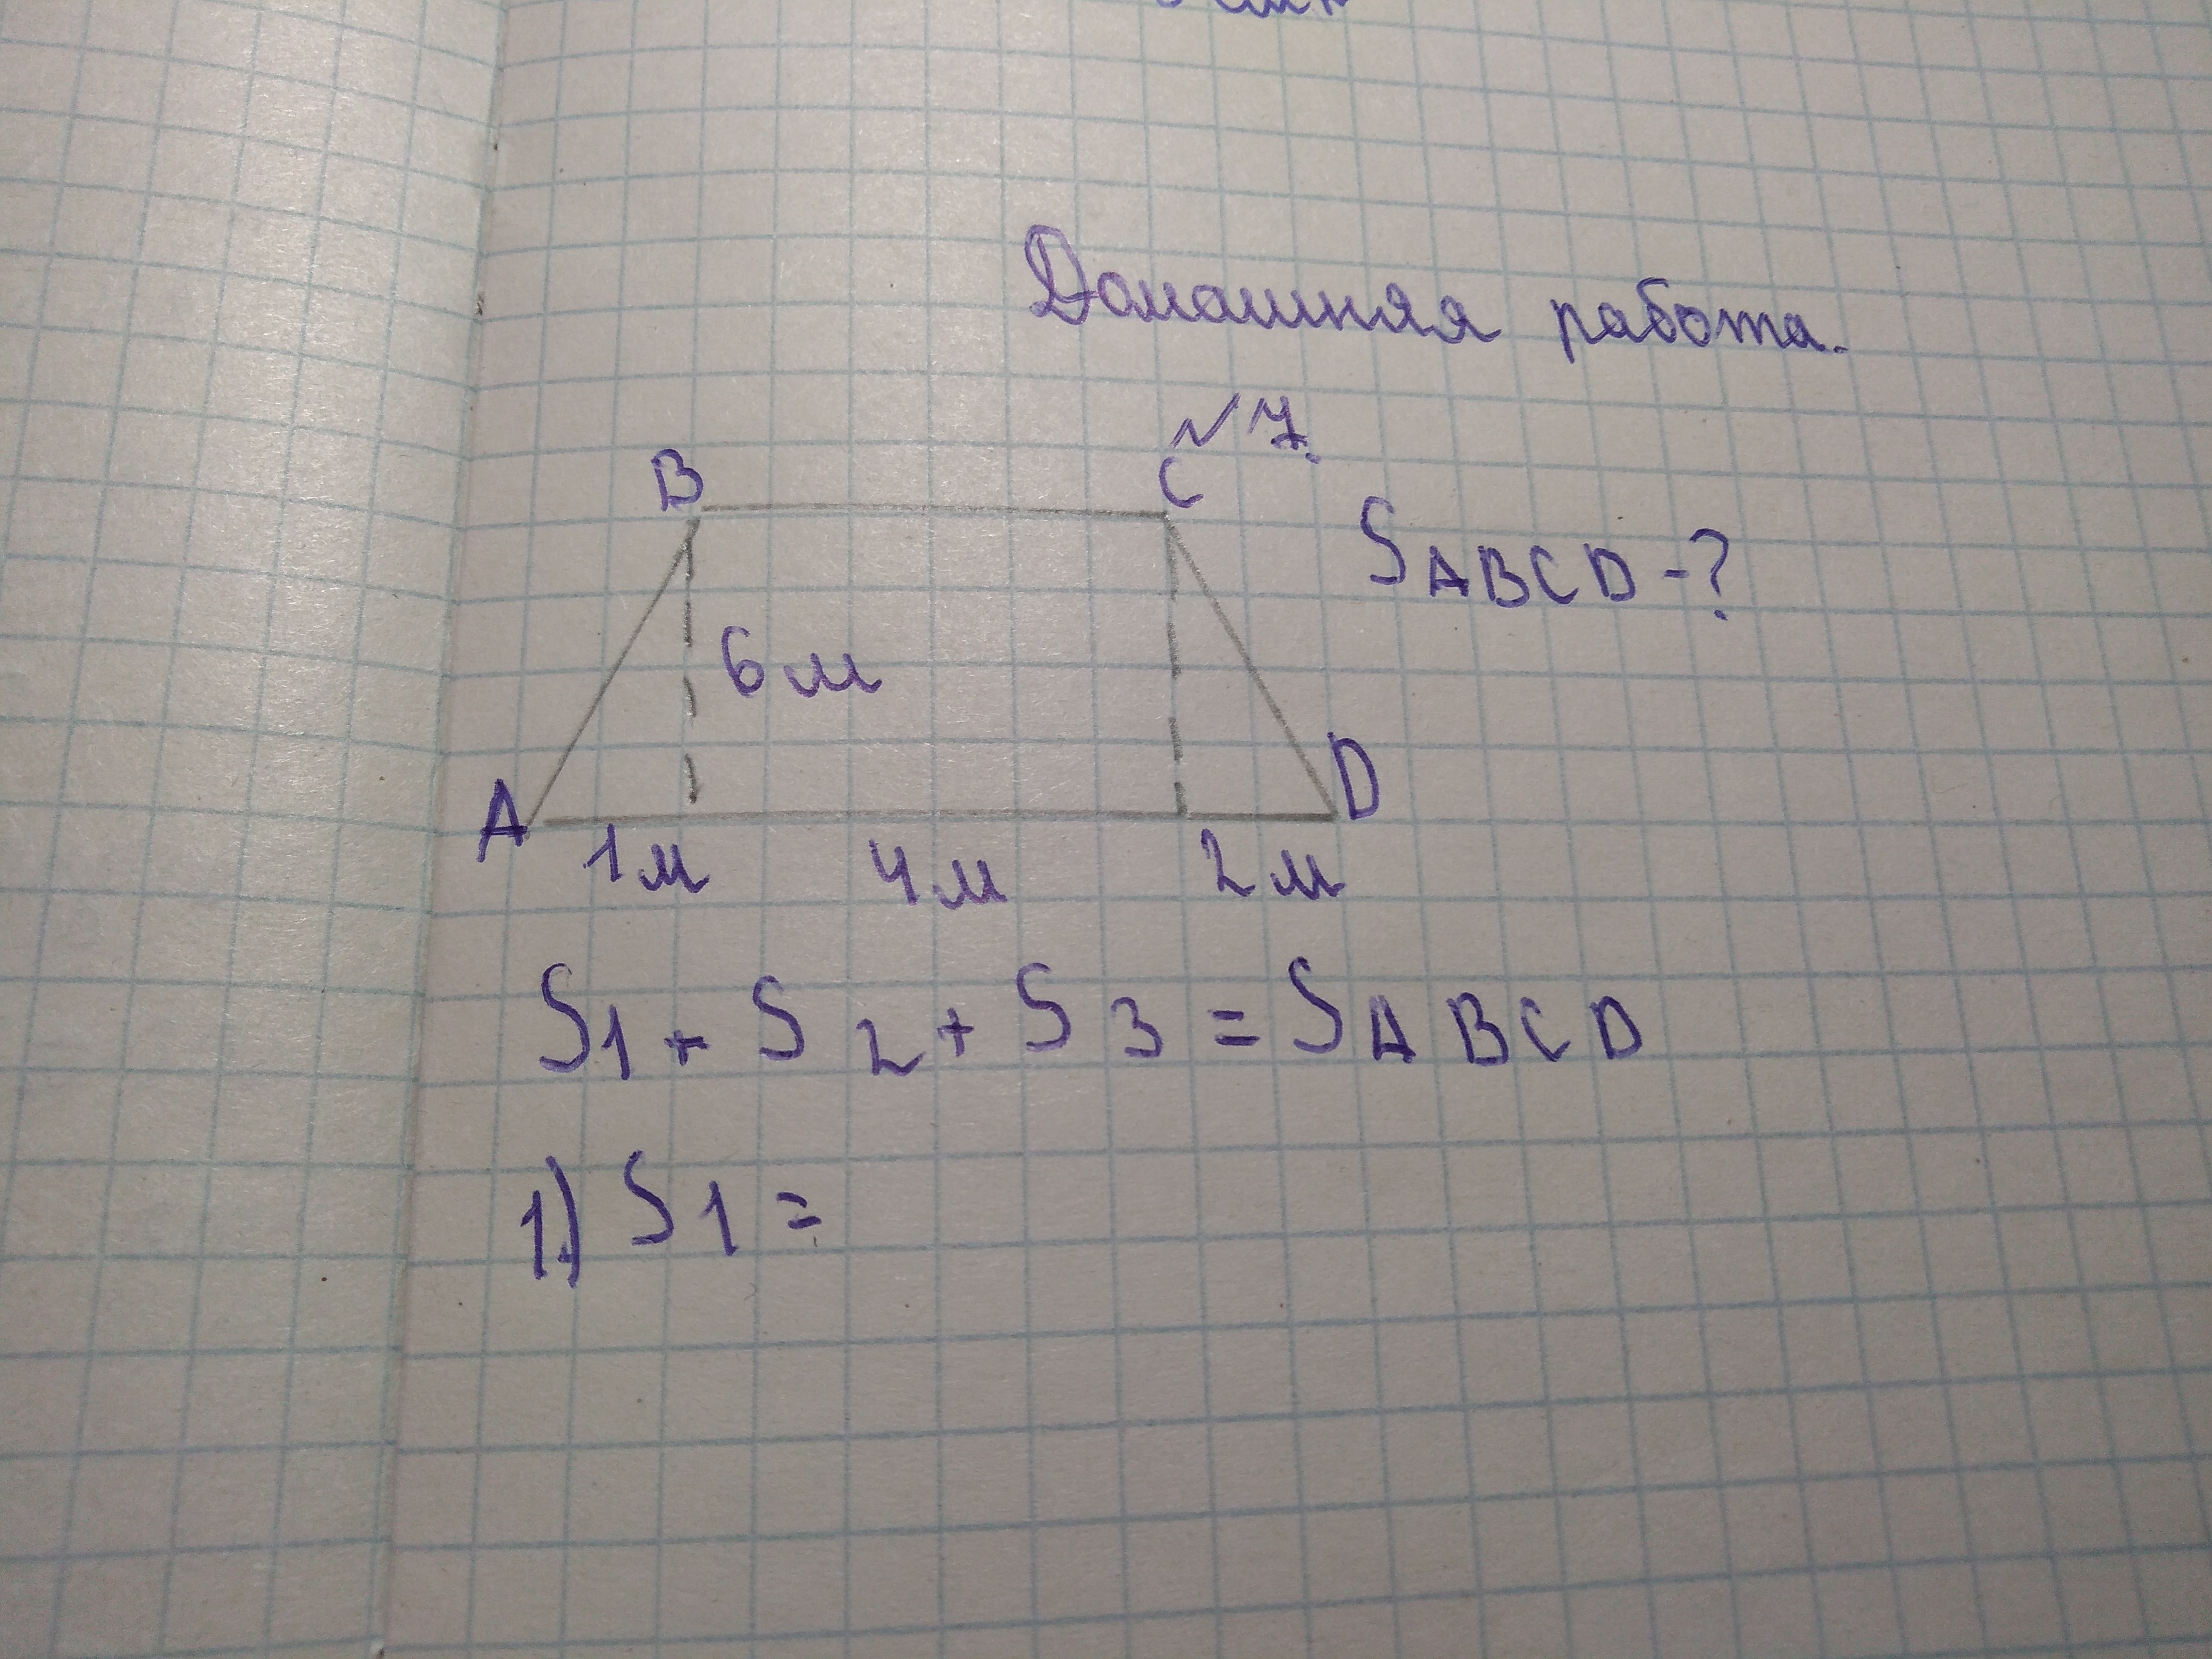 Домашняя работа.
№7.
B C
SABCD-?
6м
A D
1м 4м 2м
S1+S2+S3=SABCD
1) S1=